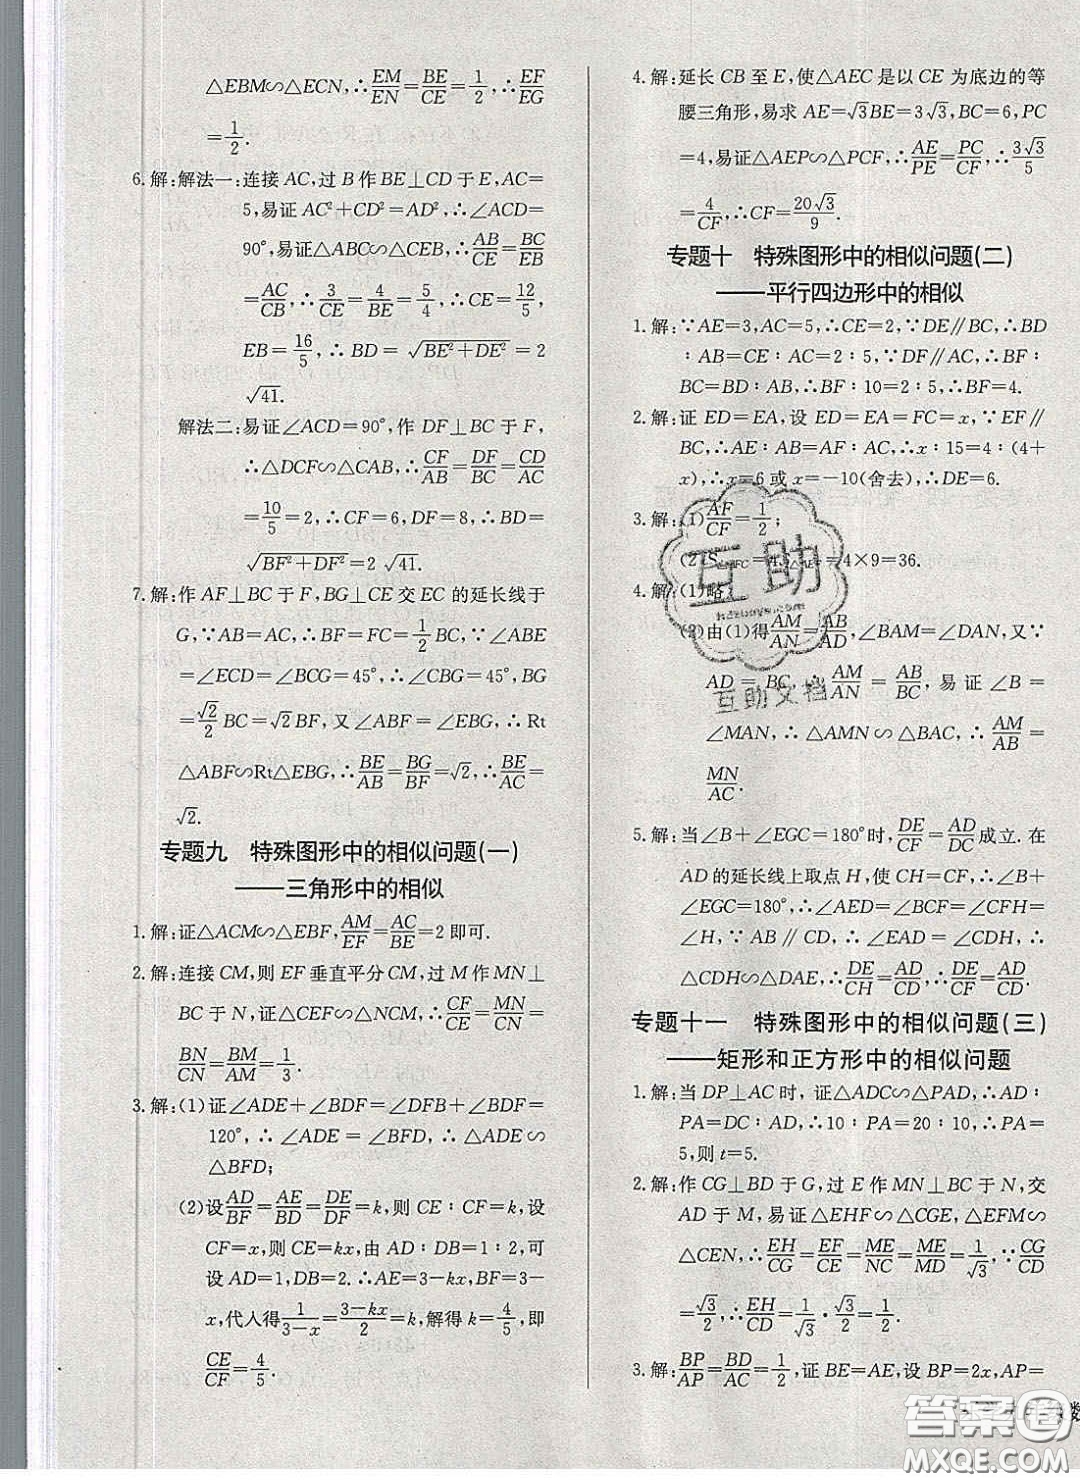 △EBM∽△ECN,∴EM/EN=BE/CE=1/2,∴EF/EG
=1/2.
6.解:解法一:连接AC,过B作BE⊥CD于E,AC=
5,易证AC²+CD²=AD²,∴∠ACD=
90°,易证△ABC∽△CEB,∴AB/CE=BC/BE
=AC/CB,∴3/CE=4/BE=5/4,∴CE=12/5,
EB=16/5,∴BD=√(BE²+DE²)=2
√41.
解法二:易证∠ACD=90°,作DF⊥BC于F,
∴△DCF∽△CAB,∴CF/AB=DF/BC=CD/AC
=10/5=2,∴CF=6,DF=8,∴BD=
√(BF²+DF²)=2√41.
7.解:作AF⊥BC于F,BG⊥CE交EC的延长线于
G,∵AB=AC,∴BF=FC=1/2BC,∵∠ABE
=∠ECD=∠BCG=45°,∠BCG=45°,BG
=√2/2BC=√2BF,又∠ABF=∠EBG,∴Rt
△ABF∽Rt△EBG,∴BE/AB=BG/BF=√2,∴BE/AC=
√2.
专题九 特殊图形中的相似问题(一)
——三角形中的相似
1.解:证△ACM∽△EBF,AM/EF=AC/BE=2即可.
2.解:连接CM,则EF垂直平分CM,过M作MN⊥
BC于N,证△CEF∽△NCM,∴CF/CE=MN/CN=
BN/CN=BM/AM=1/3.
3.解:(1)证∠ADE+∠BDF=∠DFB+∠BDF=
120°,∴∠ADE=∠BFD,∴△ADE∽
△BFD;
(2)设AD/BF=AE/BD=DE/DF=k,则CE∶CF=k,设
CF=x,则CE=kx,由AD∶DB=1∶2,可
设AD=1,DB=2.∴AE=3-kx,BF=3-
x,代人得1/(3-x)=(3-kx)/2=k,解得k=4/5,即
CE/CF=4/5.
4.解:延长CB至E,使△AEC是以CE为底边的等
腰三角形,易求AE=√3BE=3√3,BC=6,PC
=4,易证△AEP∽△PCF,∴AE/PE=PC/CF,∴3√3/5
=4/CF,∴CF=20√3/9.
专题十 特殊图形中的相似问题(二)
——平行四边形中的相似
1.解:∵AE=3,AC=5,∴CE=2,∵DE∥BC,∴BD
∶AB=CE∶AC=2∶5,∵DF∥AC,∴BF∶
BC=BD∶AB,∴BF∶10=2∶5,∴BF=4.
2.解:证ED=EA,设ED=EA=FC=x,∵EF∥
BC,∴AE∶AB=AF∶AC,∴x∶15=4∶(4+
x),∴x=6或x=-10(舍去),∴DE=6.
3.解:(1)AF/CF=1/2;
=4×9=36.
4.解:(1)略;
(2)由(1)得AM/AN=AB/AD,∠BAM=∠DAN,又∵
AD=BC,∴AM/AN=AB/BC,易证∠B=
∠MAN,∴△AMN∽△BAC,∴AM/AB=
MN/AC.
5.解:当∠B+∠EGC=180°时,DE/CF=AD/DC成立.在
AD的延长线上取点H,使CH=CF,∴∠BEG+
∠EGC=180°,∴∠AED=∠BCF,∴∠CFH=
∠H,∵AB∥CD,∴∠EAD=∠CDH,∴
△CDH∽△DAE,∴DE/CH=AD/CD,∴DE/CF=AD/CD.
专题十一 特殊图形中的相似问题(三)
——矩形和正方形中的相似问题
1.解:当DP⊥AC时,证△ADC∽△PAD,∴AD∶
PA=DC∶AD,∴10∶PA=20∶10,∴PA=
5,则t=5.
2.解:作CG⊥BD于G,过E作MN⊥BC于N,交
AD于M,易证△EHF∽△CGE,△EMF∽
△CEN,∴EH/CG=EF/CE=ME/NC=ME/MD=1/√3,∵CG/CD
=√3/2,∴EH/CD=1/√3·√3/2=1/2.
3.解:BP/AP=BD/AC=1/2,证BE=AE,设BP=2x,AP=
互助
互助文档
答案圈
MXQE.COM